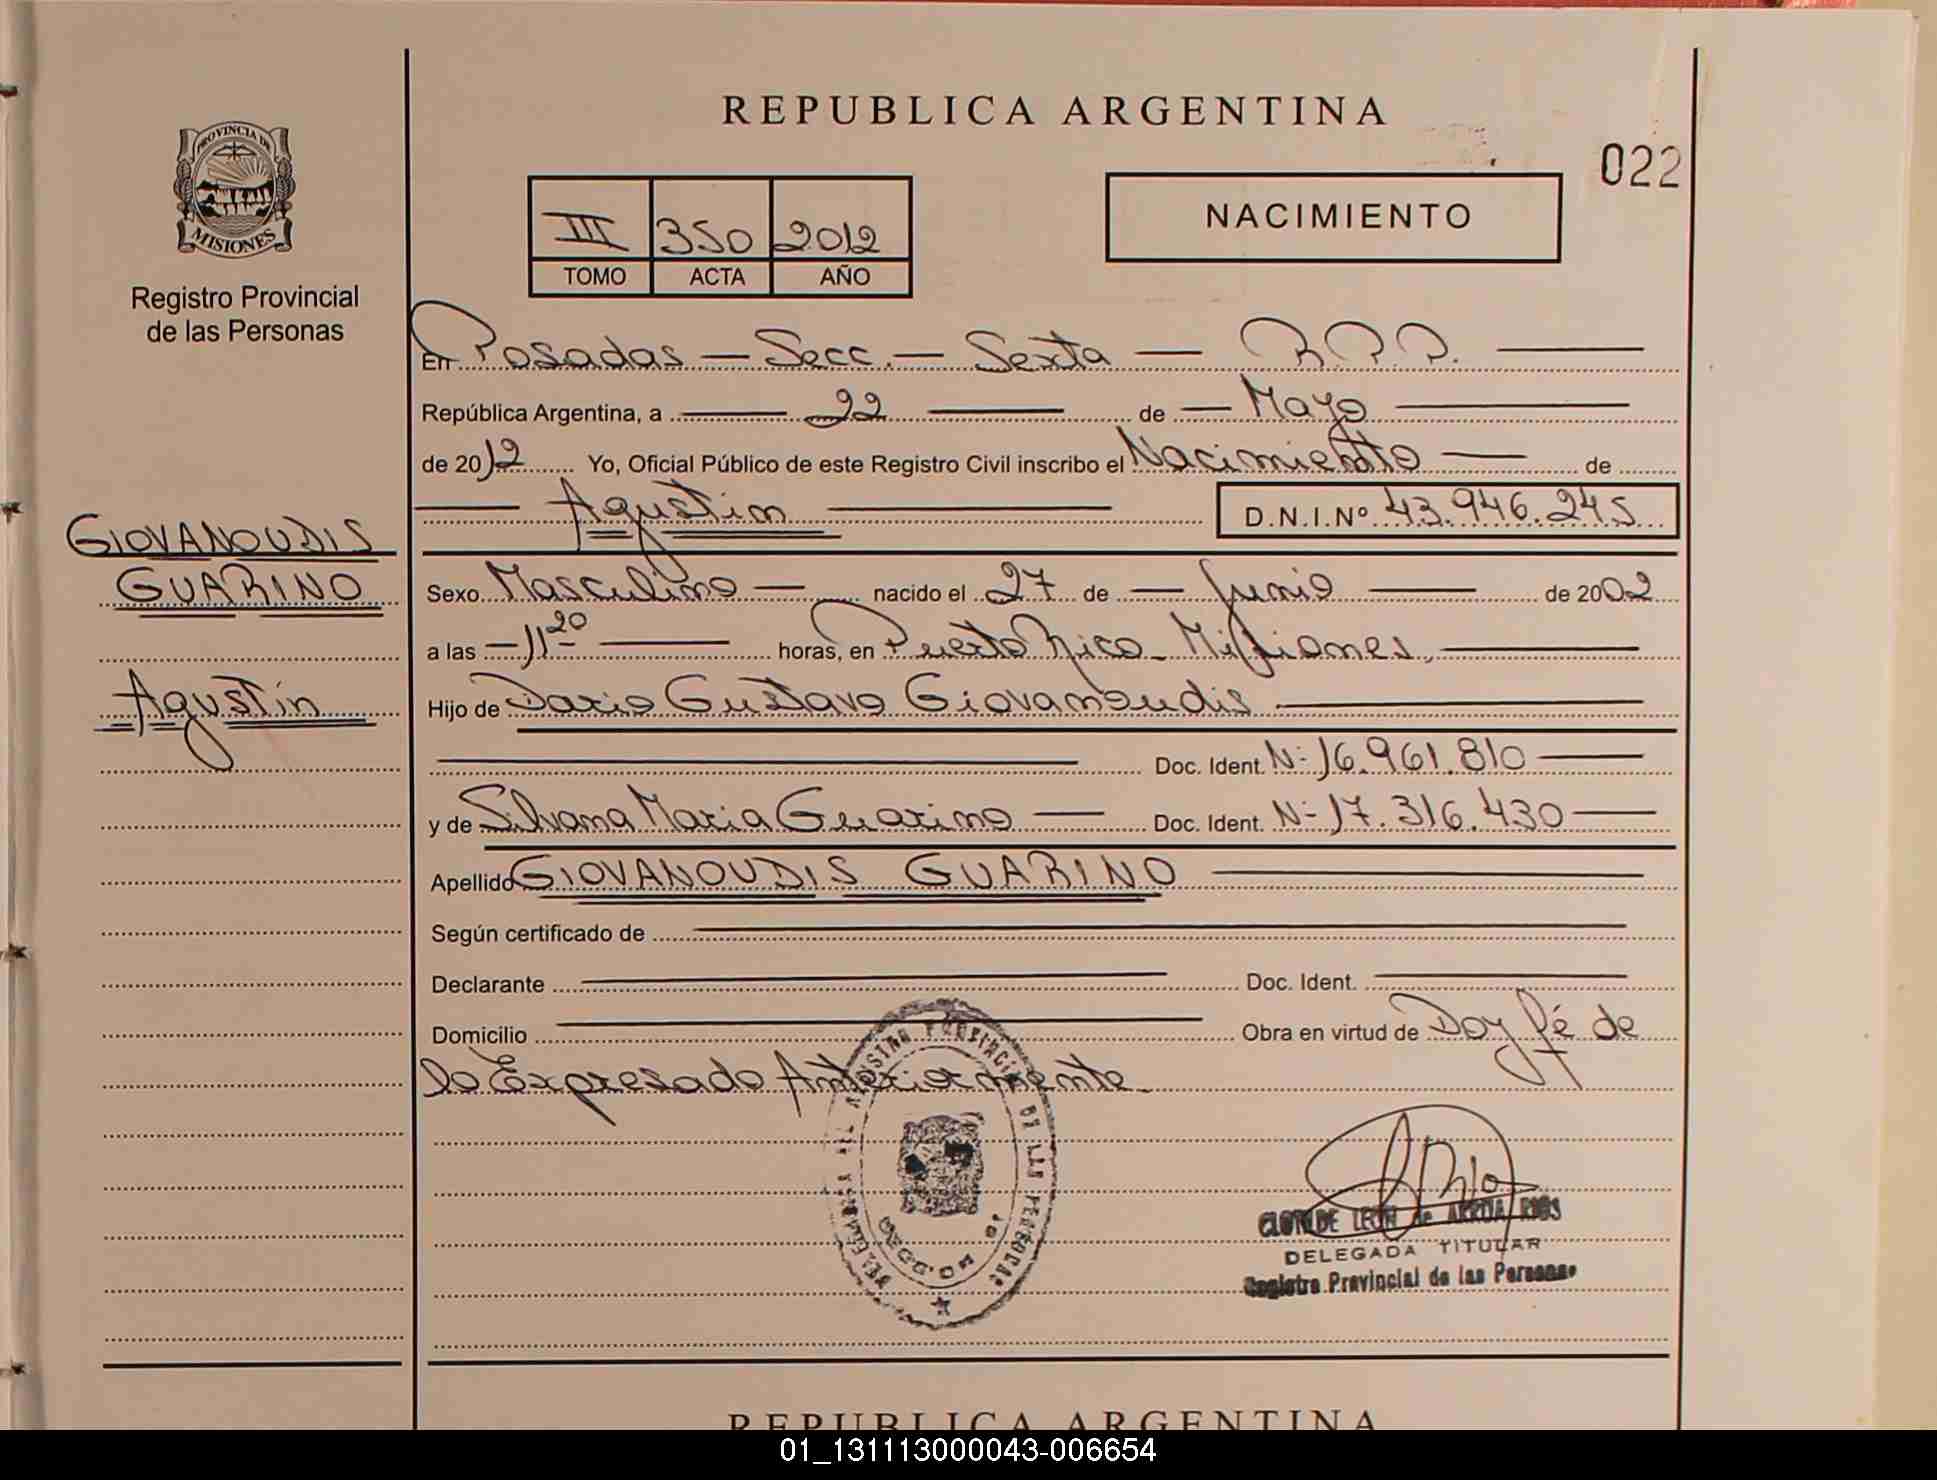 REPUBLICA ARGENTINA
022
PROVINCIA DE
MISIONES
Registro Provincial
de las Personas
III 350 2012
TOMO ACTA AÑO
NACIMIENTO
En Posadas — Secc. — Sexta — R.P.P. —
República Argentina, a — 22 — de — Mayo —
de 2012 Yo, Oficial Público de este Registro Civil inscribo el Nacimiento — de
— Agustin — D.N.I.Nº 43.946.245
GIOVANOUDIS
GUARINO
Agustín
Sexo Masculino — nacido el 27 de — Junio — de 2002
a las — 11 20 — horas, en Puerto Rico - Misiones, —
Hijo de Dario Gustavo Giovanoudis —
— Doc. Ident. Nº 16.961.810 —
y de Silvana Maria Guarino — Doc. Ident. Nº 17.316.430 —
Apellido GIOVANOUDIS GUARINO —
Según certificado de —
Declarante — Doc. Ident. —
Domicilio — Obra en virtud de Doy fé de
lo Expresado Anteriormente -
REGISTRO PROVINCIAL DE LAS PERSONAS
CLOTILDE LEON de ARROA RIOS
DELEGADA TITULAR
Registro Provincial de las Personas
REPUBLICA ARGENTINA
01_131113000043-006654